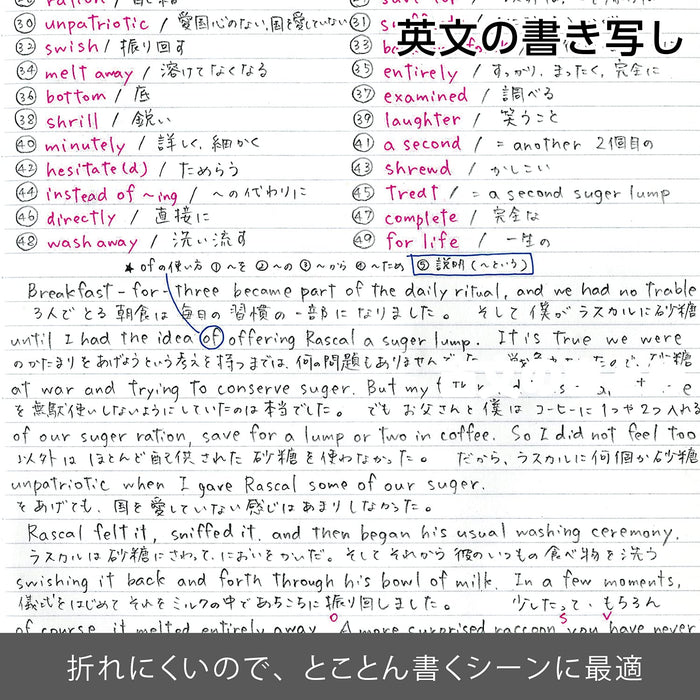 英文の書き写し
㉚ unpatriotic / 愛国心のない,国を愛していない ㉛
㉜ swish / 振り回す ㉝
㉞ melt away / 溶けてなくなる ㉟ entirely / すっかり,まったく,完全に
㊱ bottom / 底 ㊲ examined / 調べる
㊳ shrill / 鋭い ㊴ laughter / 笑うこと
㊵ minutely / 詳しく,細かく ㊶ a second / = another 2個目の
㊷ hesitate(d) / ためらう ㊸ shrewd / かしこい
㊹ instead of ~ing / ~の代わりに ㊺ Treat / = a second suger lump
㊻ directly / 直接に ㊼ complete / 完全な
㊽ wash away / 洗い流す ㊾ for life / 一生の
★ ofの使い方 ①~を ②~の ③~から ④~ため ⑤説明(~という)
Breakfast-for-three became part of the daily ritual, and we had no trable
3人でとる朝食は毎日の習慣の一部になりました。 そして僕がラスカルに砂糖
until I had the idea of offering Rascal a suger lump. It is true we were
のかたまりをあげようという考えを持つまでは,何の問題もありませんで 砂糖
at war and trying to conserve suger. But my
を無駄使いしないようにしていたのは本当でした。 でもお父さんと僕はコーヒーに1つや2つ入れる
of our suger ration, save for a lump or two in coffee. So I did not feel too
以外はほとんど配供された砂糖を使わなかった。 だから,ラスカルに何個か砂糖
unpatriotic when I gave Rascal some of our suger.
をあげても,国を愛していない感じはあまりしなかった。
Rascal felt it, sniffed it, and then began his usual washing ceremony,
ラスカルは砂糖にさわって,においをかいだ。そしてそれから彼のいつもの食べ物を洗う
swishing it back and forth through his bowl of milk. In a few moments,
儀式をはじめてそれをミルクの中であちこちに振り回しました。 少したって,もちろん
of course it melted entirely away. A more surprised raccoon you have never
折れにくいので、とことん書くシーンに最適